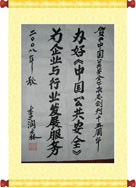 贺《中国公共安全》杂志创刊十五周年
办好《中国公共安全》
为企业与行业发展服务
李润森
二〇〇八年 秋